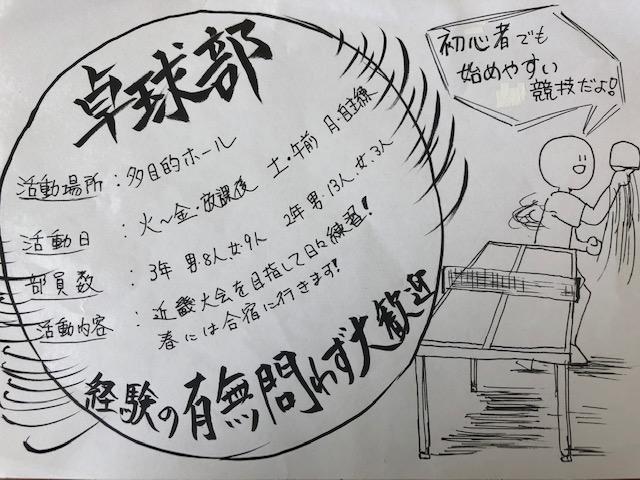 卓球部
活動場所：多目的ホール
活動日：火〜金・放課後 土・午前 月・自主練
部員数：3年 男・8人 女・9人 2年 男・13人、女・3人
活動内容：近畿大会を目指して日々練習！
春には合宿に行きます！
経験の有無問わず大歓迎
初心者でも
始めやすい
競技だよ！